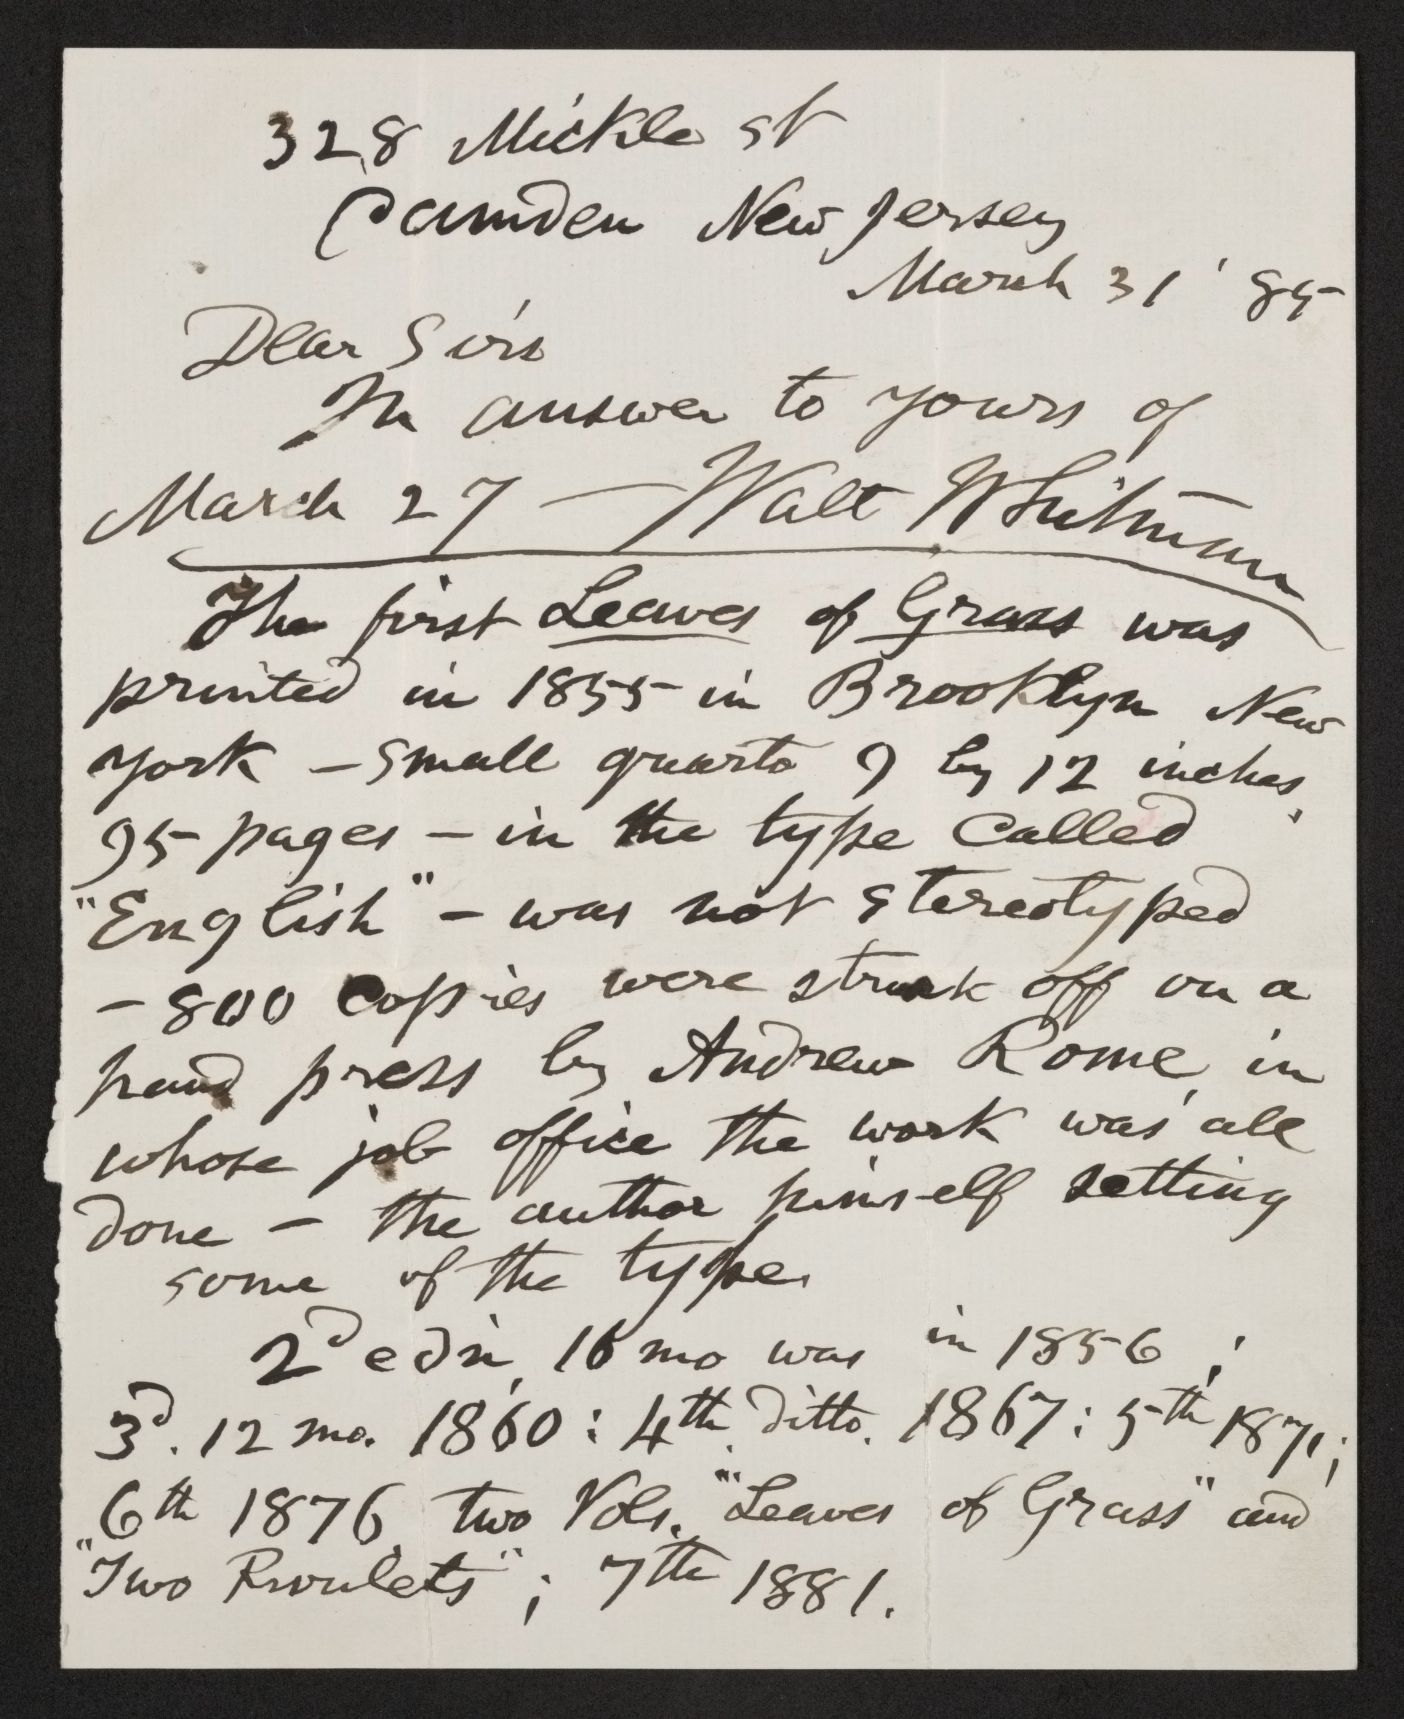 328 Mickle st
Camden New Jersey
March 31 '85
Dear Sirs
In answer to yours of
March 27 — Walt Whitman
The first Leaves of Grass was
printed in 1855 in Brooklyn New
York – small quarto 9 by 12 inches,
95 pages – in the type called
"English" – was not stereotyped
– 800 copies were struck off on a
hand press by Andrew Rome, in
whose job office the work was all
done – the author himself setting
some of the type.
2d ed'n, 16 mo was in 1856 ;
3d. 12 mo. 1860 : 4th. ditto. 1867 : 5th 1871 ;
6th 1876, two Vols. "Leaves of Grass" and
"Two Rivulets" ; 7th 1881.